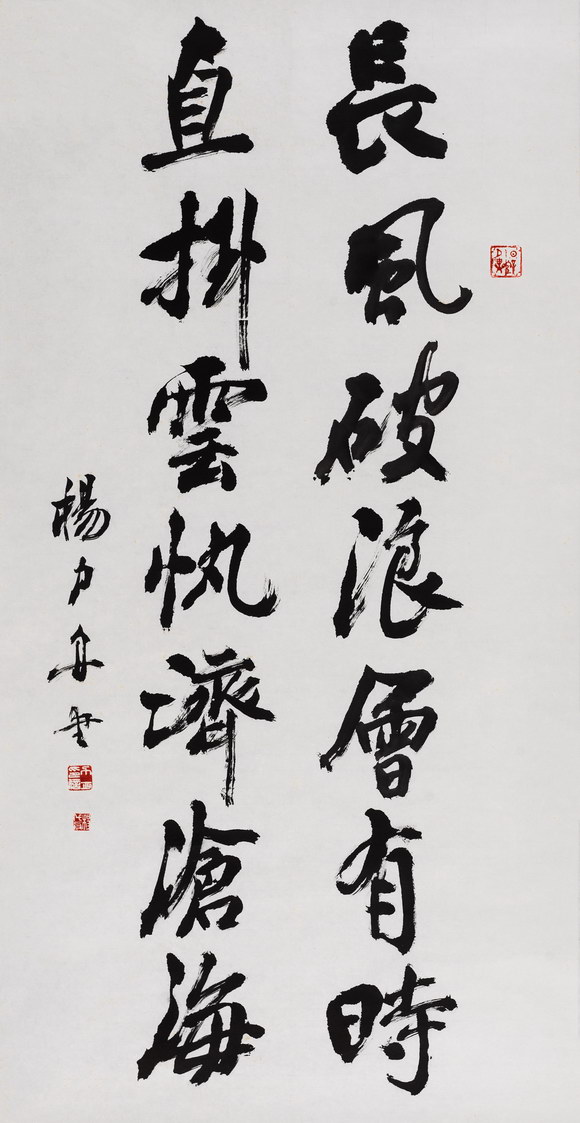 長風破浪會有時
直掛雲帆濟滄海
楊力舟